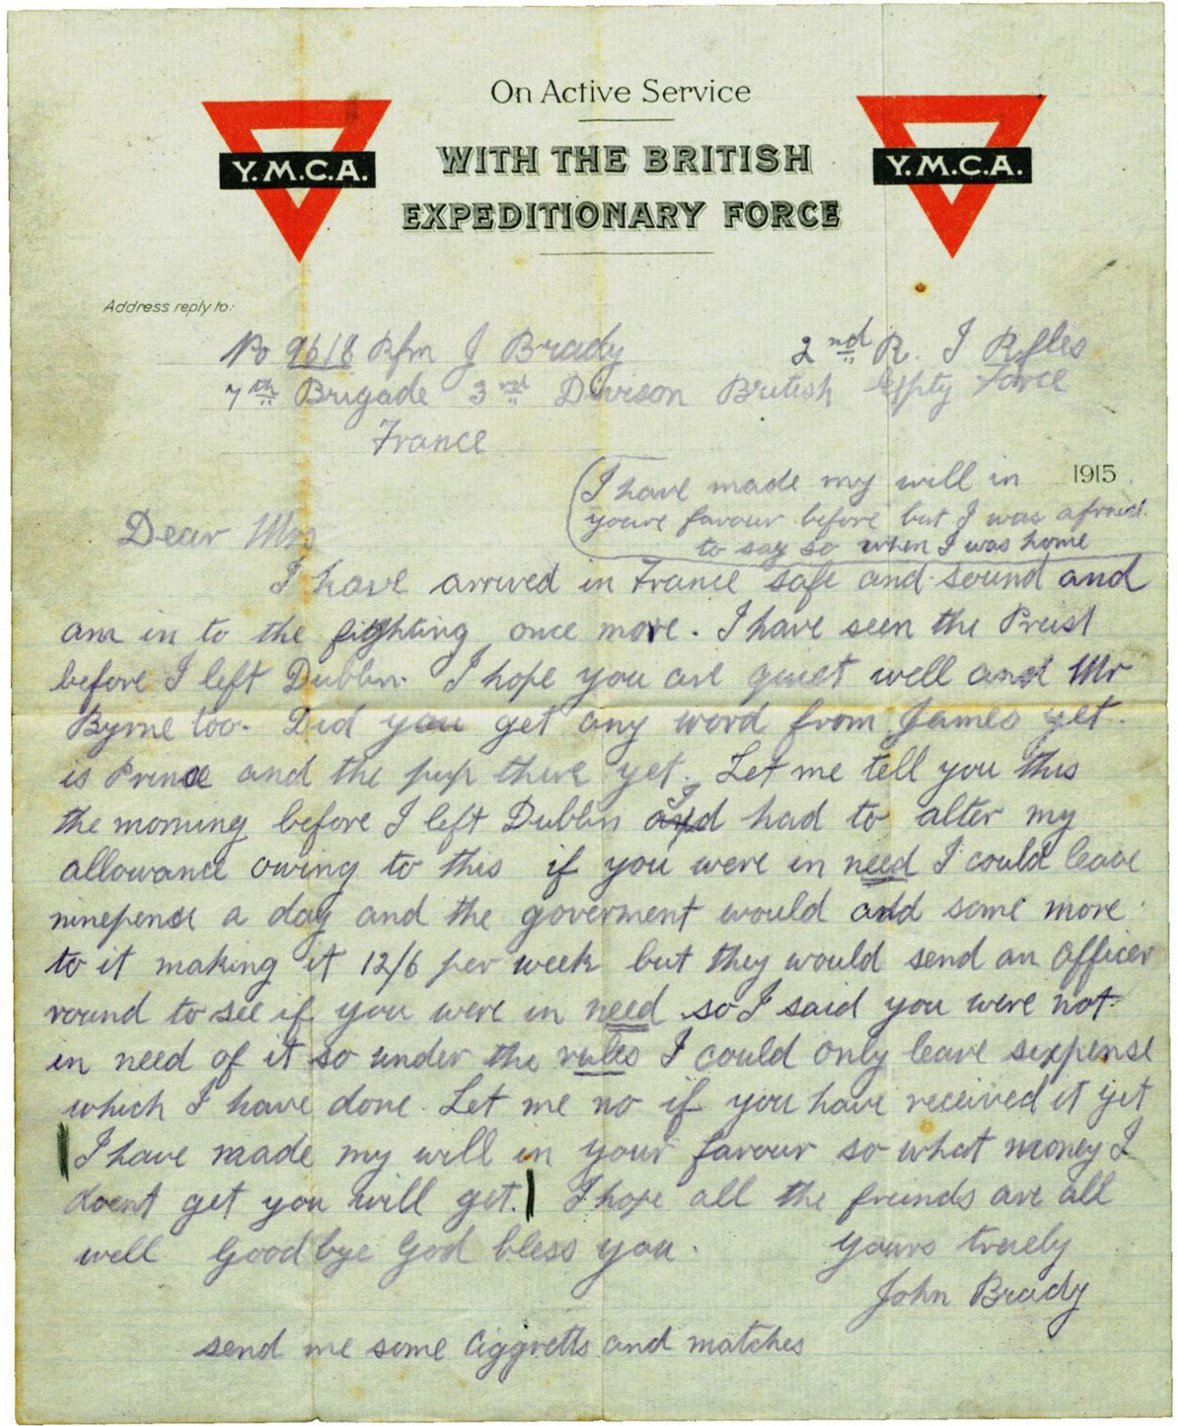 On Active Service
WITH THE BRITISH
EXPEDITIONARY FORCE
Y.M.C.A.
Y.M.C.A.
Address reply to:
No 9618 Rfm J Brady 2nd R. I Rifles
7th Brigade 3rd Divison British Expty Force
France
1915
(I have made my will in
youre favour before but I was afraid
to say so when I was home
Dear Mrs
I have arrived in France safe and sound and
am in to the fighting once more. I have seen the Preist
before I left Dublin. I hope you are quiet well and Mr
Byrne too. Did you get any word from James yet.
is Prince and the pup there yet. Let me tell you this
the morning before I left Dublin I had to alter my
allowance owing to this if you were in need I could leave
ninepence a day and the goverment would add some more
to it making it 12/6 per week but they would send an Officer
round to see if you were in need so I said you were not
in need of it so under the rules I could only leave sixpense
which I have done. Let me no if you have received it yet
I have made my will in your favour so what money I
doent get you will get. I hope all the freinds are all
well Goodbye God bless you. Yours truely
John Brady
send me some Ciggretts and matches